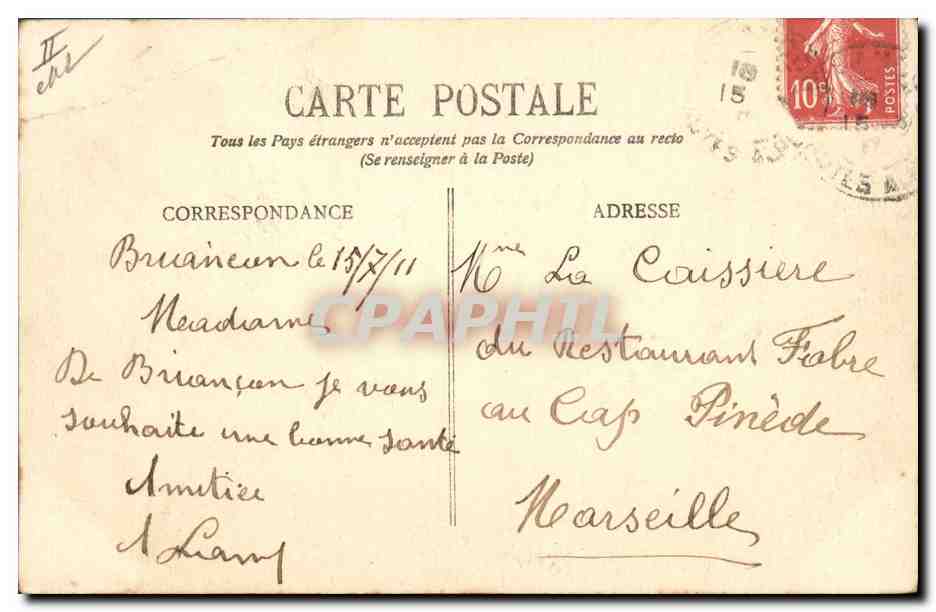 II
CARTE POSTALE
Tous les Pays étrangers n'acceptent pas la Correspondance au recto
(Se renseigner à la Poste)
CORRESPONDANCE
Briançon le 15/7/11
Madame
De Briançon je vous
souhaite une bonne santé
Amitiée
A
ADRESSE
Mme La Caissiere
du Restaurant Fabre
au Cap Pinède
Marseille
10c POSTES
18
15
CPAPHIL